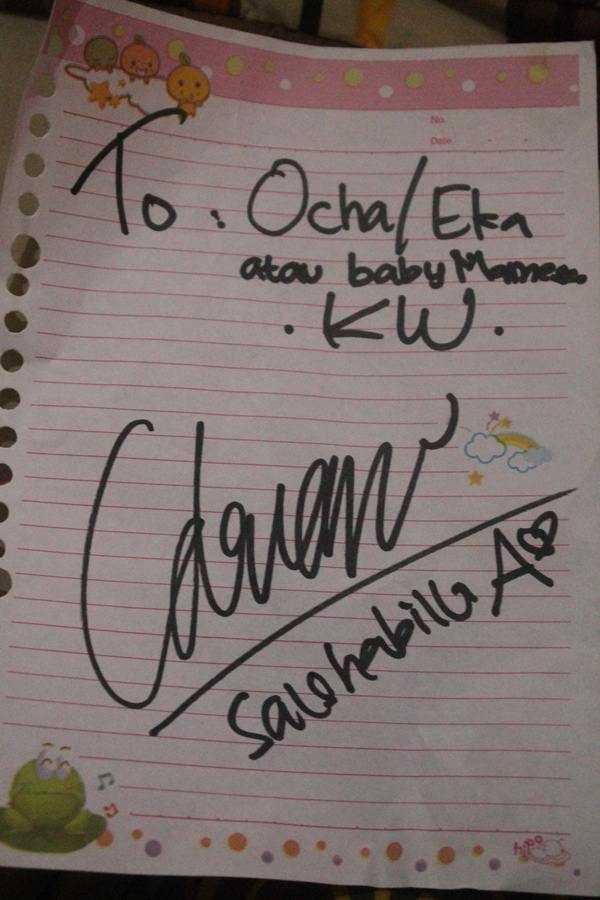 No.
Date
To : Ocha/Eka
atau baby Mamess
. KW .
Salshabilla A
hipo